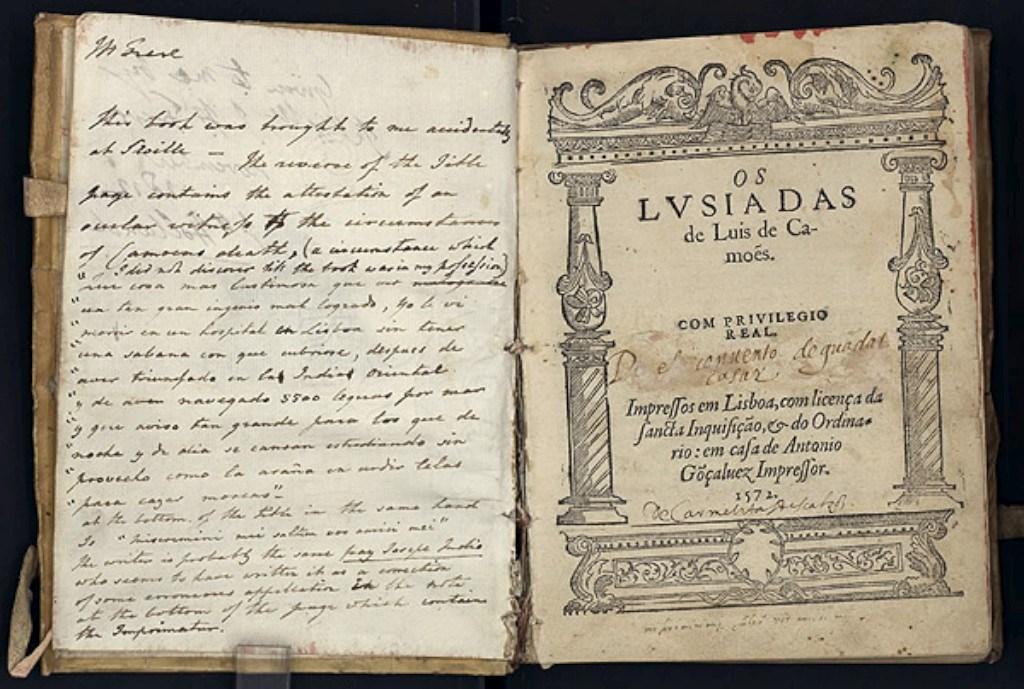 Mr Frere
This book was brought to me accidentally
at Seville — The reverse of the Title
page contains the attestation of an
ocular witness to the circumstances
of Camoens death, (a circumstance which
I did not discover till the book was in my possession)
" cosa mas lastimosa que ver
un tan gran ingenio mal logrado, yo le vi
morir en un hospital en Lisboa sin tener
una sabana con que cubrirse, despues de
aver triunfado en la India Oriental
y de aver navegado 5500 leguas por mar
y que aviso tan grande para los que de
noche y de dia se cansan estudiando sin
provecho como la araña en urdir telas
"para cazar moscas"
at the bottom of the title in the same hand
is "miseremini mei saltem vos amici mei"
The writer is probably the same fray Josepe Indio
who seems to have written it as a correction
of some erroneous application in the note
at the bottom of the page which contains
the Imprimatur.
OS
LVSIADAS
de Luis de Ca-
moẽs.
COM PRIVILEGIO
REAL.
De el conuento de guadal
cazar
Impreſſos em Lisboa, com licença da
ſancta Inquiſição, & do Ordina-
rio: em caſa de Antonio
Gõçaluez Impreſſor.
1572.
De Carmelitas